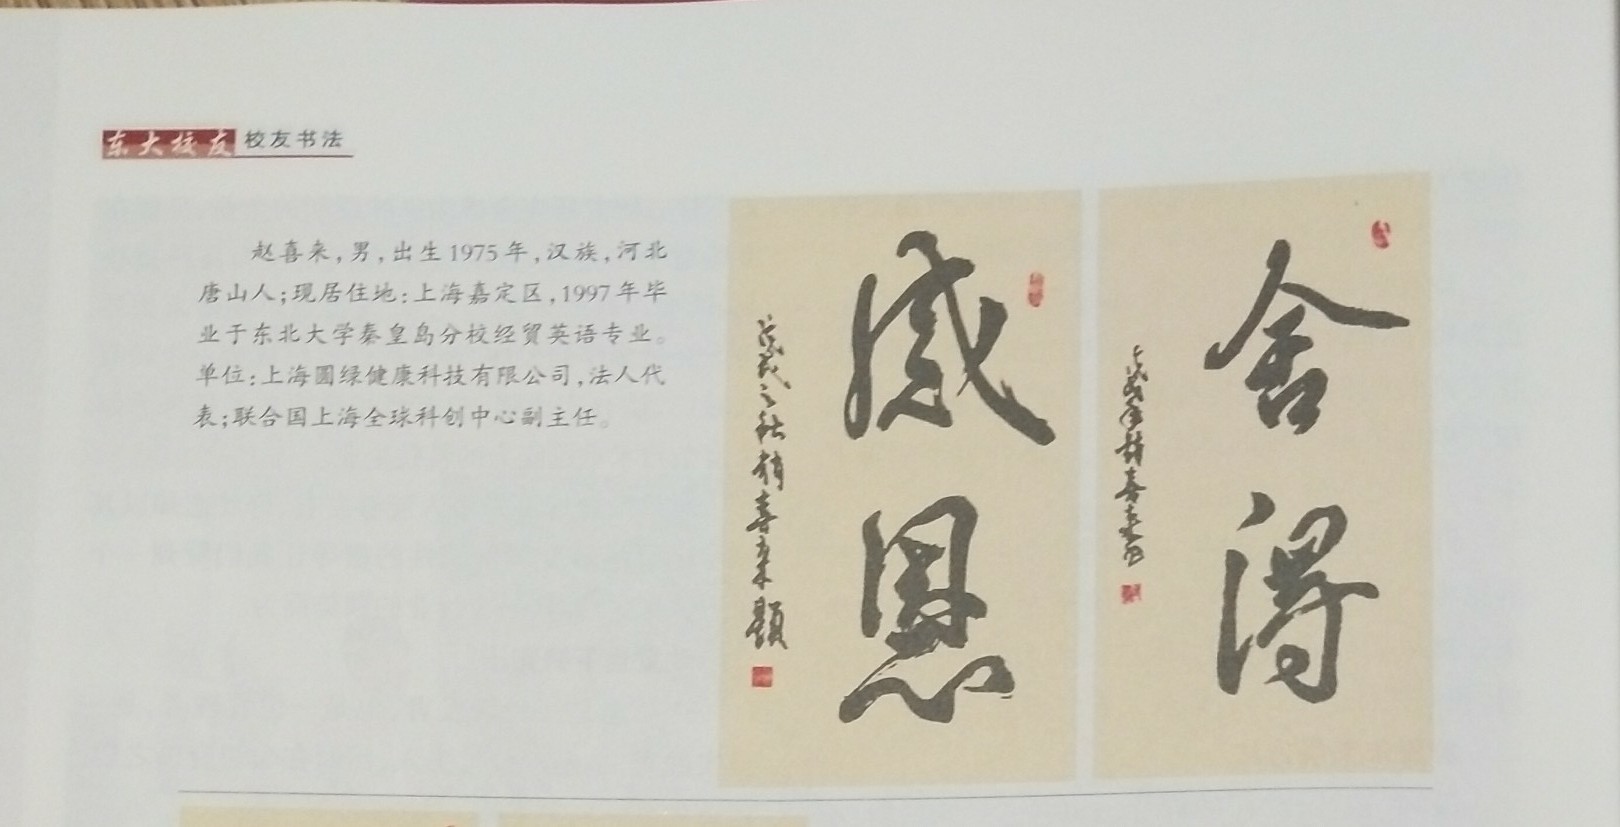 东大校友 校友书法
赵喜来,男,出生1975年,汉族,河北
唐山人;现居住地:上海嘉定区,1997年毕
业于东北大学秦皇岛分校经贸英语专业。
单位:上海圆绿健康科技有限公司,法人代
表;联合国上海全球科创中心副主任。
感恩
戊戌之秋赵喜来题
舍得
戊戌年赵喜来